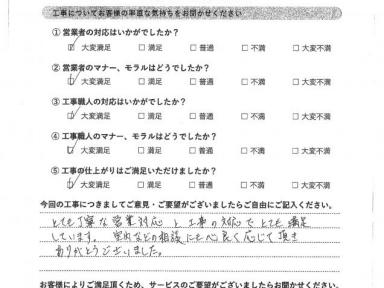 工事についてお客様の率直な気持ちをお聞かせください
① 営業者の対応はいかがでしたか？
□ 大変満足 □ 満足 □ 普通 □ 不満 □ 大変不満
② 営業者のマナー、モラルはどうでしたか？
□ 大変満足 □ 満足 □ 普通 □ 不満 □ 大変不満
③ 工事職人の対応はいかがでしたか？
□ 大変満足 □ 満足 □ 普通 □ 不満 □ 大変不満
④ 工事職人のマナー、モラルはどうでしたか？
□ 大変満足 □ 満足 □ 普通 □ 不満 □ 大変不満
⑤ 工事の仕上がりはご満足いただけましたか？
□ 大変満足 □ 満足 □ 普通 □ 不満 □ 大変不満
今回の工事につきましてご意見・ご要望がございましたらご自由にご記入ください。
とても丁寧な営業対応と工事の対応でとても満足
しています。室内などの相談にも心良く応じて頂き
ありがとうございました。
お客様によりご満足頂くため、サービスのご要望がございましたらお聞かせください。